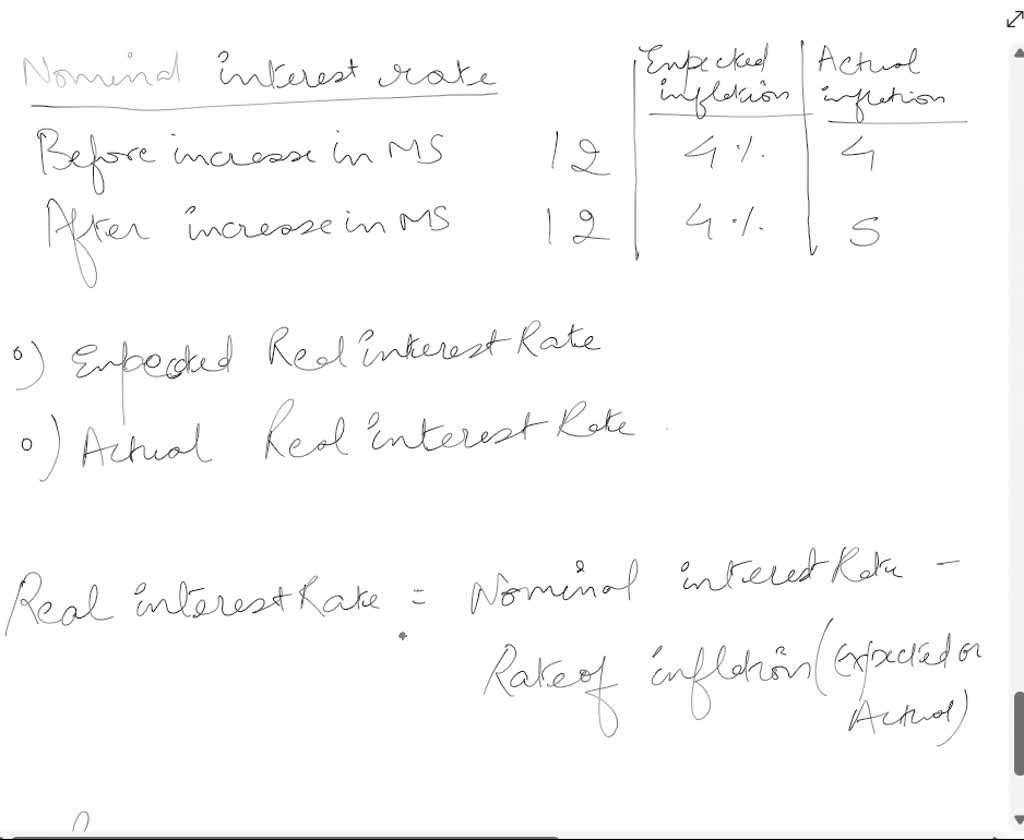 Nominal interest rate | Expected inflation | Actual inflation
Before increase in MS 12 | 4% | 4
After increase in MS 12 | 4% | 5
o) Expected Real interest Rate
o) Actual Real interest Rate
Real interest Rate = Nominal interest Rate -
Rate of inflation (expected or
Actual)